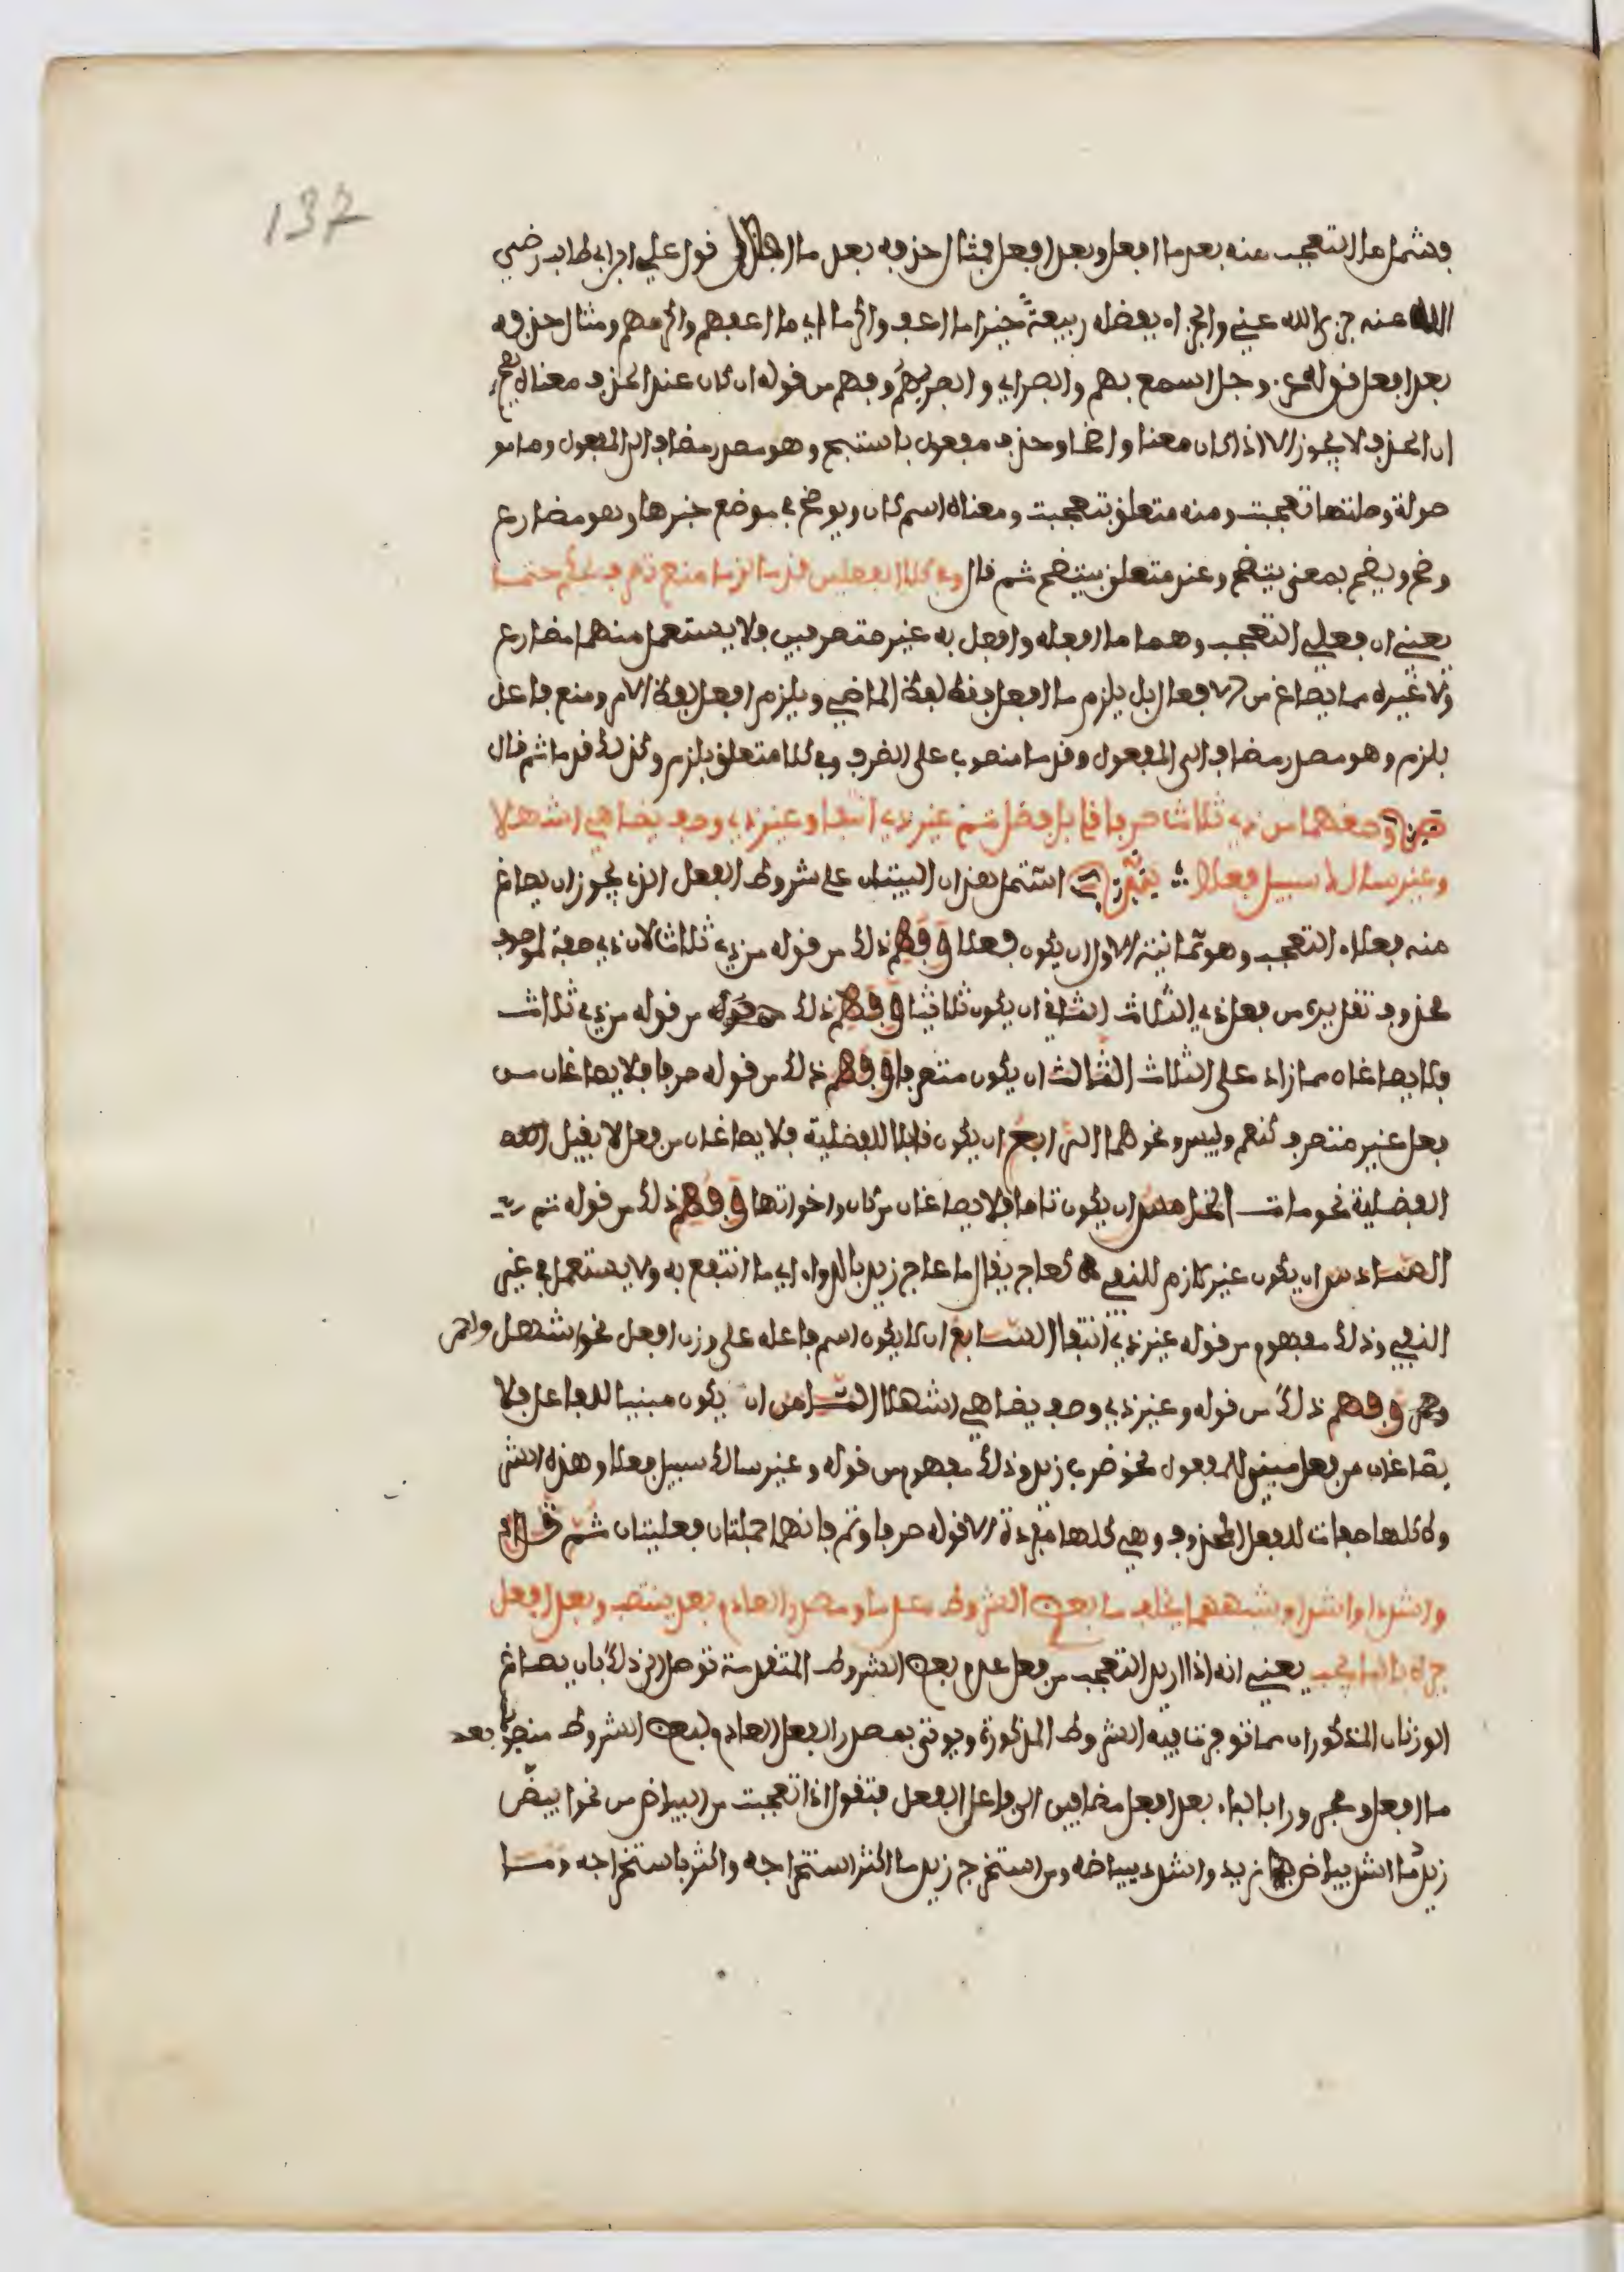 137
فشمل ما التعجب منه بعد ما افعل وبعد افعل فمثال حذفه بعد ما افعل قول علي ابن ابي طالب رضي
الله عنه جزى الله عني والجزاء بفضله ربيعة خيرا ما اعف واكرما اي ما اعفهم واكرمهم ومثال حذفه
بعد افعل قوله عز وجل اسمع بهم وابصر اي وابصر بهم وفهم من قوله ان كان عند الحذف معناه يضح
ان الحذف لا يجوز الا اذا كان معنا واضحا وحذف مفعول باستبح وهو مصدر مضاف الى المفعول وما مو
صولة وصلتها تعجبت ومنه متعلق بتعجبت ومعناه اسم كان ويوضح في موضع خبرها وهو مضارع
وضح ويضح بمعنى يتضح وعند متعلق بيتضح ثم قال وفي كلا الفعلين قدما لزما منع تصرف بحكم حتما
يعني ان فعلي التعجب وهما ما افعله وافعل به غير متصرفين فلا يستعمل منهما مضارع
ولا غيره مما يصاغ من الافعال بل يلزم ما افعل لفظة الماضي ويلزم افعل لفظة الامر ومنع فاعل
بلزم وهو مصدر مضاف الى المفعول وقدما منصوب على الظرف وفي كلا متعلق بلزم وكذلك قدما ثم قال
وصغهما من ذي ثلاث صرفا قابل فضل تم غير ذي انتفا وغير ذي وصف يضاهي اشهلا
وغير سالك سبيل فعلا اشتمل هذان البيتان على شروط الفعل الذي يجوز ان يصاغ
منه فعلا التعجب وهو ثمانية الاول ان يكون فعلا وفهم ذلك من قوله من ذي ثلاث لان ذي صفة لموصوف
محذوف تقديره من فعل ذي الثلاث الثاني ان يكون ثلاثيا وفهم ذلك من قوله من ذي ثلاث
فلا يصاغان مما زاد على الثلاث الثالث ان يكون متصرفا وفهم ذلك من قوله صرفا فلا يصاغان من
فعل غير متصرف كنعم وبيس ونحوهما الرابع ان يكون قابلا للفضلية فلا يصاغان من فعل لا يقبل
الفضلية نحو مات الخامس ان يكون تاما فلا يصاغان من كان واخواتها وفهم ذلك من قوله تم
السادس ان يكون غير لازم للنفي كعاج يقال ما عاج زيد بالدواء اي ما انتفع به ولا يستعمل في غير
النفي وذلك مفهوم من قوله غير ذي انتفا السابع ان لا يكون اسم فاعله على وزن افعل نحو اشهل واحمر
وفهم ذلك من قوله وغير ذي وصف يضاهي اشهلا الثامن ان يكون مبنيا للفاعل فلا
يصاغان من فعل مبني للمفعول نحو ضرب زيد وذلك مفهوم من قوله وغير سالك سبيل فعلا وهذه الشر
وط كلها صفات للفعل المحذوف وهي كلها مفردة الا قوله صرفا وتم فانهما جملتان فعليتان ثم قال
واشدد او اشد او شبههما يخلف ما بعض الشروط عدما ومصدر العادم بعد ينتصب وبعد افعل
جره بالبا يجب يعني انه اذا اريد التعجب من فعل عدم بعض الشروط المتقدمة توصل الى ذلك بان يصاغ
الوزنان المذكوران مما توفرت فيه الشروط المذكورة ويوتى بمصدر الفعل العادم لبعض الشروط منصوبا بعد
ما افعل ومجرورا بالباء بعد افعل مضافين الى فاعل الفعل فتقول اذا تعجبت من البياض من نحو ابيض
زيد ما اشد بياض زيد واشدد ببياضه ومن استخرج زيد ما اكثر استخراجه واكثر باستخراجه وما